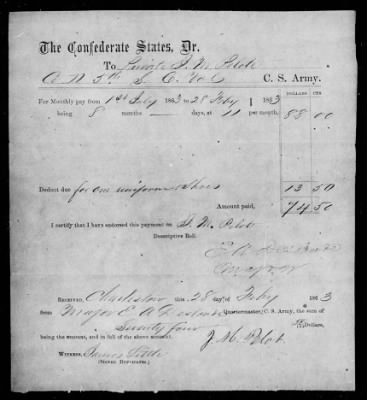 The Confederate States, Dr.
To Private J. M. Pelot
5th S. C. C. S. Army.
DOLLARS CTS
For Monthly pay from 1st July 1863 to 28 Feby 1863
being 8 months — days, at 11 per month. 88 00
Deduct due for one uniform & Shoes 13 50
Amount paid, 74 50
I certify that I have endorsed this payment to J. M. Pelot
Descriptive Roll.
E A
Major
RECEIVED, Charleston this 28 day of Feby 1863
from Major E A Quartermaster, C. S. Army, the sum of
Seventy four Dollars,
being the amount, and in full of the above account.
J. M. Pelot
WITNESS, James
(SIGNED DUPLICATES.)